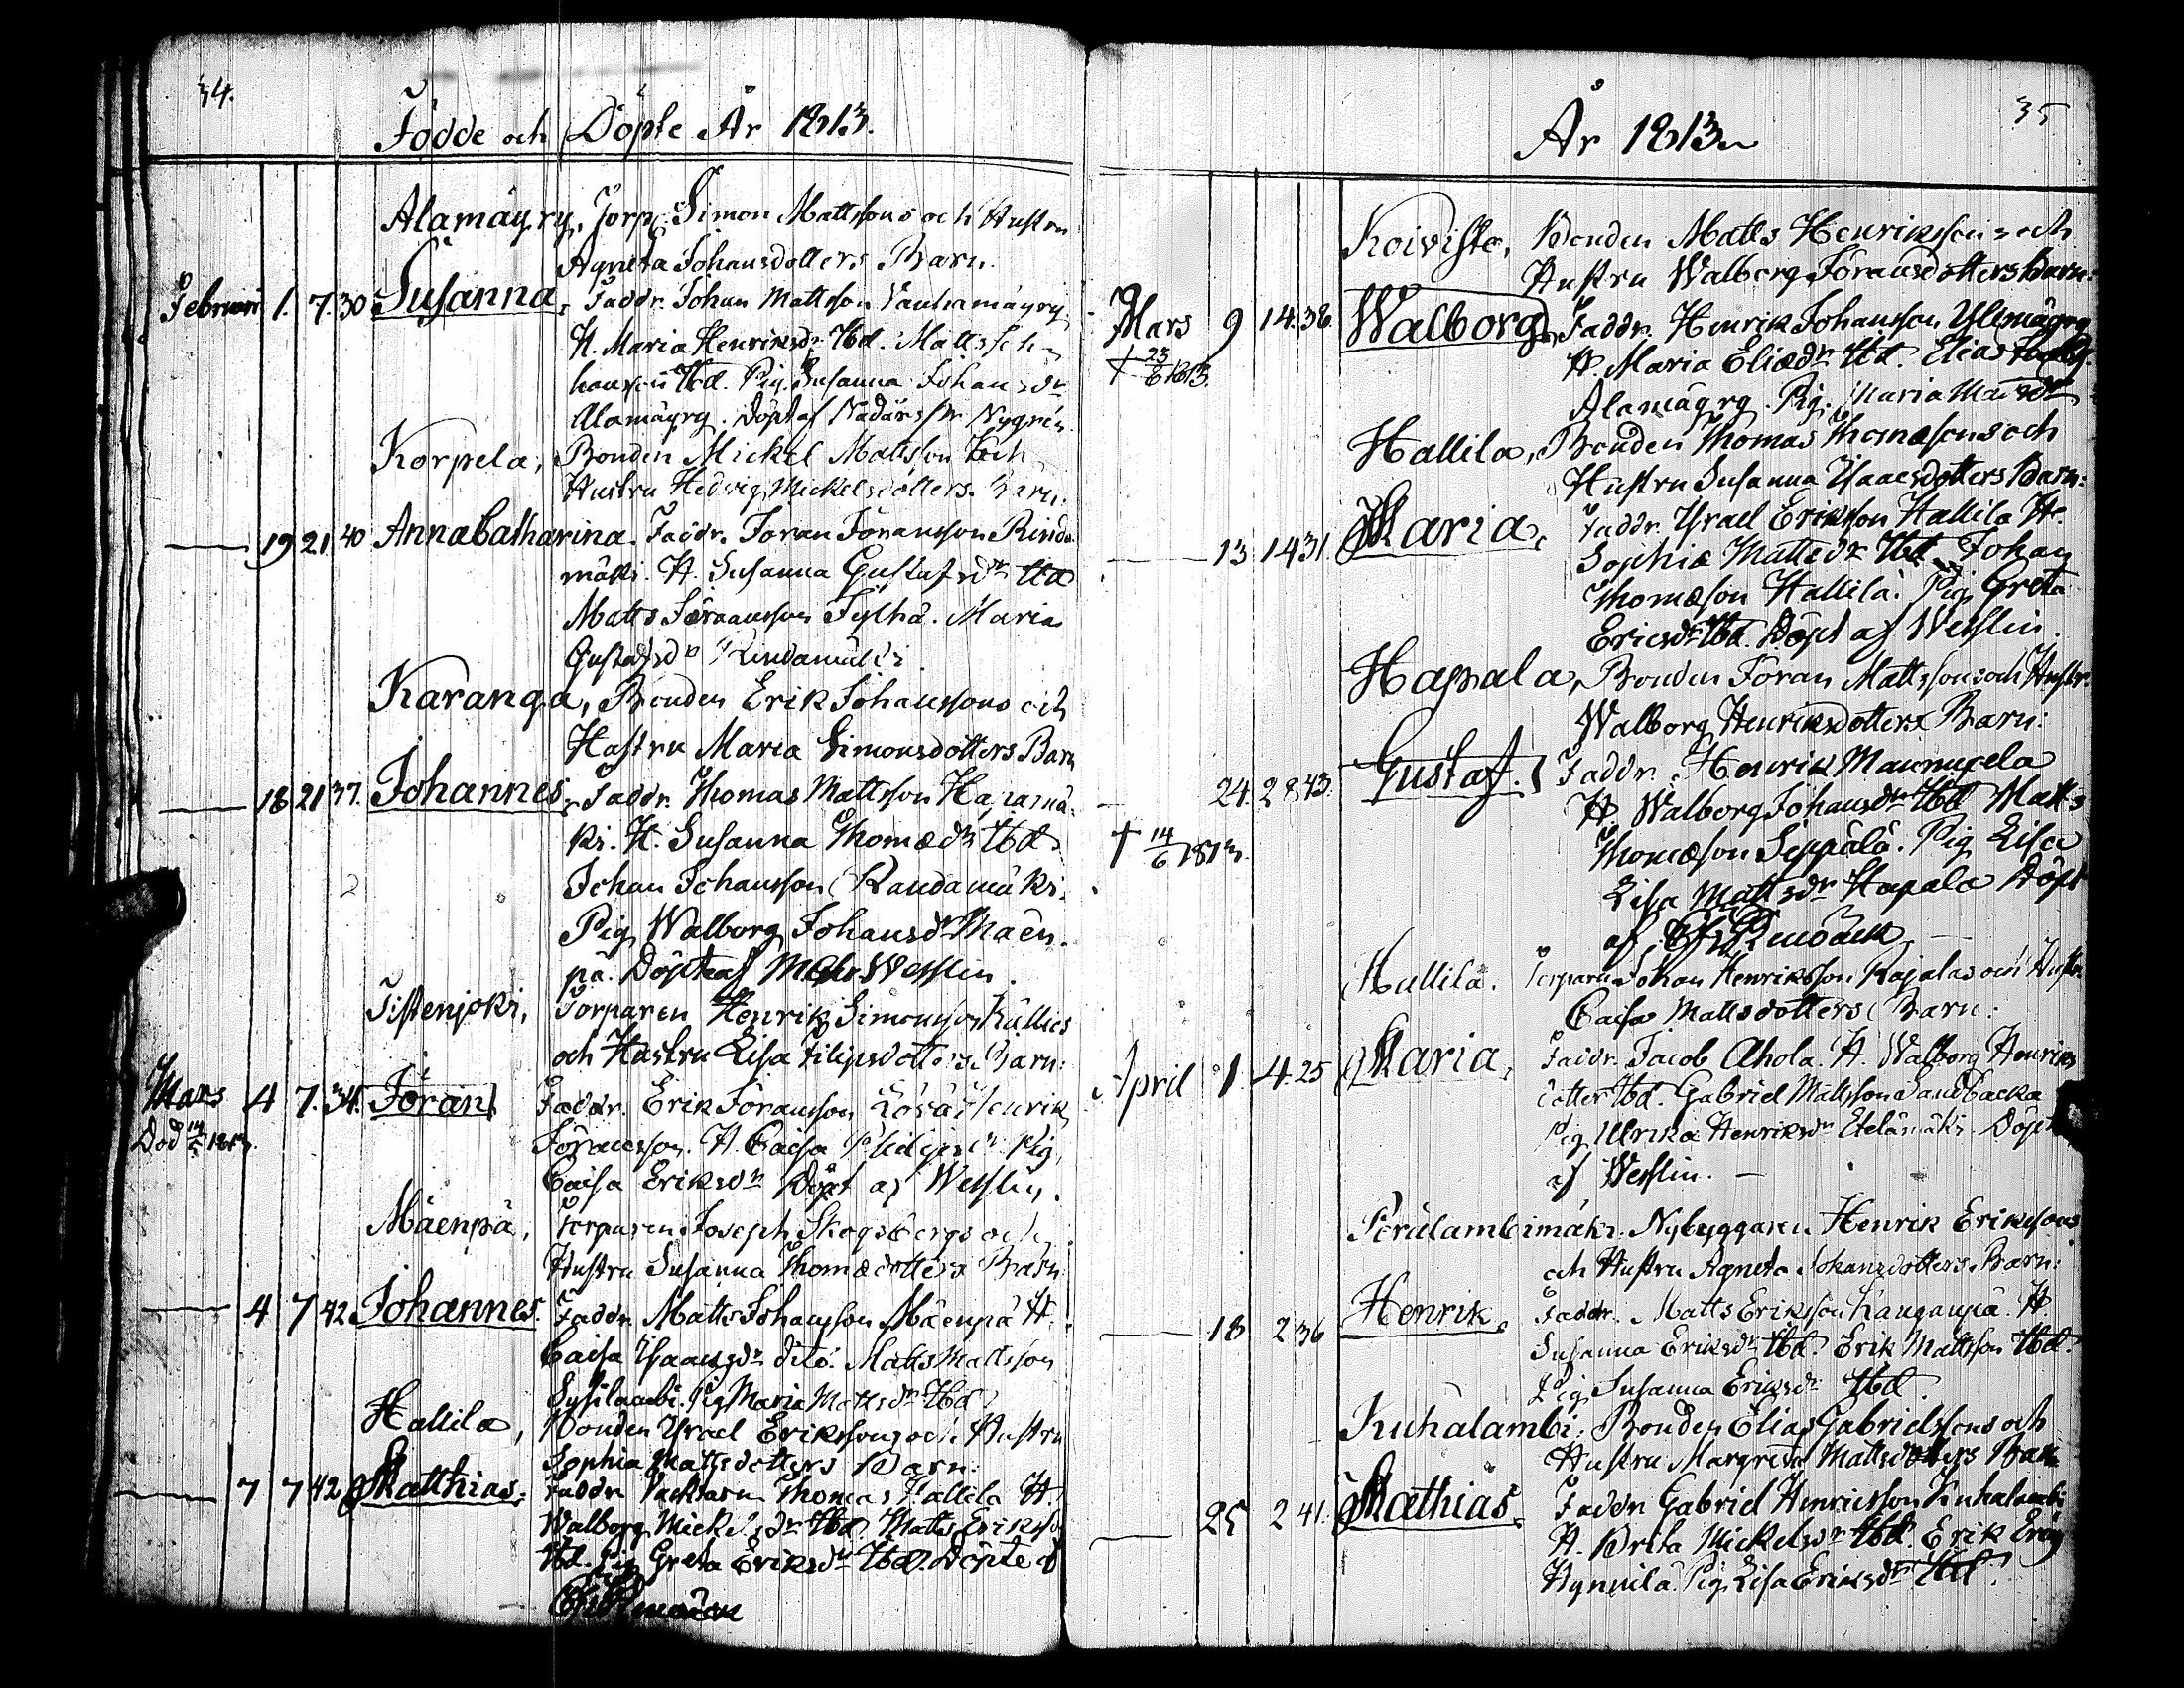 34.
Födde och Döpte År 1813.
Alamäyry, Torp. Simon Mattssons och Hustru
Agneta Johansdotters Barn.
Februari 1. 7. 30 Susanna, Faddr. Johan Mattsson Vanhamäyry
H. Maria Henriksdr Ibd. Matts Jo-
hansson Ibd. Pig. Susanna Johansdr
Alamäyry. Döpt af Nygrén.
Korpela, Bonden Mickel Mattsson och
Hustru Hedvig Mickelsdotters Barn.
19 21 40 Anna Catharina. Faddr. Jöran Göransson Rinda
mäki. H. Susanna Gustafsdr Ibd
Matts Jöransson Tylhä. Maria
Gustafsdr Rindamäki.
Karanga, Bonden Erik Johanssons och
Hustru Maria Simonsdotters Barn
18 21 37. Johannes, Faddr. Thomas Mattsson Haparmä-
ki. H. Susanna Thomædr Ibd
Johan Johansson Randamäki.
Pig Walborg Johansdr Mäen-
pä. Döpt af Wesslin.
Tistenjoki, Torparen Henrik Simonsson Källies
och Hustru Lisa Filipsdotters Barn:
Mars 4 7. 34. Jöran Faddr. Erik Jöransson Henrik
Död 14/5 1813.
Jöransson. H. Caisa Pig
Caisa Eriksdr Döpt af Wesslin.
Mäenpä, Torparen Joseph Skogsbergs och
Hustru Susanna Thomædotters Barn
4 7 42 Johannes. Faddr. Matts Johansson Mäenpä H.
Caisa Isaacsdr dito. Matts Mattsson
Sysilambi. Pig Maria Mattsdr Ibd
Hallila, Bonden Israel Erikssons och Hustru
Sophia Mattsdotters Barn:
7 7 42 Matthias, Faddr Thomas Hallila H.
Walborg Mickelsdr Ibd. Matts Eriksso
Ibd. Pig Greta Eriksdr Ibd. Döpte af
35
År 1813
Koivisto, Bonden Matts Henrikssons och
Hustru Walborg Jöransdotters Barn:
Mars 9 14. 38. Walborg, Faddr. Henrik Johansson Yllmäyry
† 23/6 1813.
H. Maria Eliædr Ibd. Elias
Alamäyry. Pig. Maria
Hallila, Bonden Thomas Thomæsons och
Hustru Susanna Isaacsdotters Barn:
13 14 31 Maria, Faddr. Israel Eriksson Hallila H.
Sophia Mattsdr Ibd. Johan
Thomæson Hallila. Pig Greta
Ericsdr Ibd. Döpt af Wesslin.
Hapala, Bonden Jöran Mattssons och Hustr.
Walborg Henriksdotters Barn:
24. 28 43. Gustaf. Faddr. Henrik Maunupela
H. Walborg Johansdr Ibd Matts
† 14/6 1813.
Thomæson Seppälä. Pig Lisa
Lisa Mattsdr Hapala Döpt
af
Hallila. Torparen Johan Henriksson Rajalas och Hustru
Caisa Mattsdotters Barn:
April 1. 4. 25 Maria, Faddr. Jacob Ahola. H. Walborg Henriks
dotter Ibd. Gabriel Mattsson Sandbacka
Pig Ulrika Henriksdr Etelämäki. Döpt
af Wesslin.
Perälambimäki. Nybyggaren Henrik Erikssons
och Hustru Agneta Johansdotters Barn:
18 2 36 Henrik, Faddr. Matts Eriksson Kanganpä. H.
Susanna Eriksdr Ibd. Erik Mattsson Ibd.
Pig Susanna Eriksdr Ibd.
Kuhalambi: Bonden Elias Gabrielssons och
Hustru Margreta Mattsdotters Barn
25 2 41. Mathias, Faddr Gabriel Henricsson Kuhalambi
H. Brita Mickelsdr Ibd. Erik
Hynnilä. Pig Lisa Eriksdr Ibd.